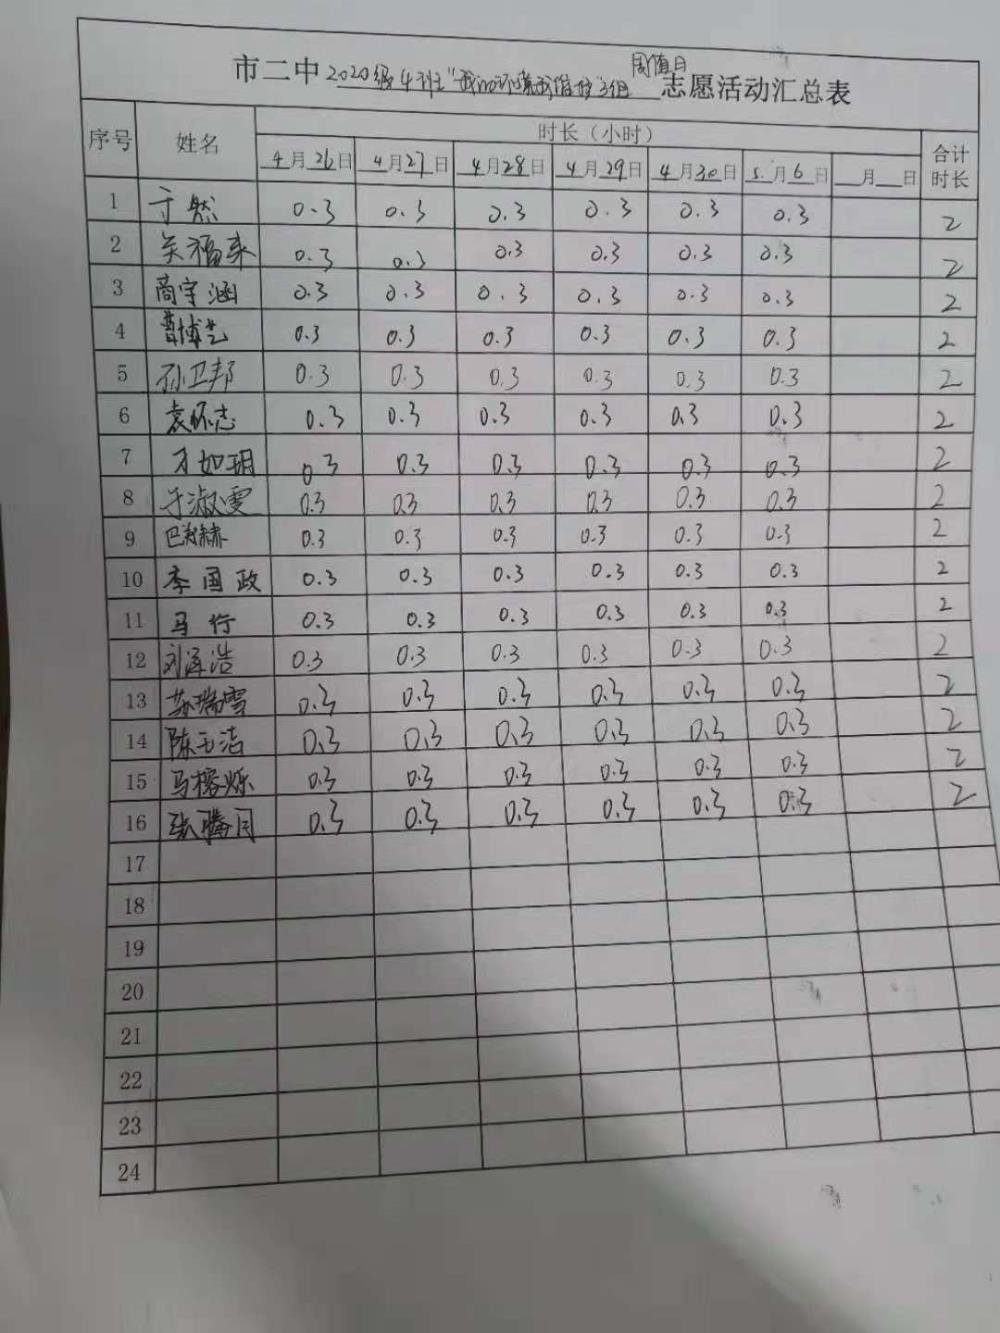 周值日
市二中2020级4班"我的环境我维护"3组志愿活动汇总表
序号 姓名 时长（小时） 合计时长
4月26日 4月27日 4月28日 4月29日 4月30日 5月6日 月 日
1 于然 0.3 0.3 0.3 0.3 0.3 0.3 2
2 关福来 0.3 0.3 0.3 0.3 0.3 0.3 2
3 商宇涵 0.3 0.3 0.3 0.3 0.3 0.3 2
4 曹博艺 0.3 0.3 0.3 0.3 0.3 0.3 2
5 孙卫邦 0.3 0.3 0.3 0.3 0.3 0.3 2
6 袁怀志 0.3 0.3 0.3 0.3 0.3 0.3 2
7 才如玥 0.3 0.3 0.3 0.3 0.3 0.3 2
8 于淑雯 0.3 0.3 0.3 0.3 0.3 0.3 2
9 0.3 0.3 0.3 0.3 0.3 0.3 2
10 李国政 0.3 0.3 0.3 0.3 0.3 0.3 2
11 马行 0.3 0.3 0.3 0.3 0.3 0.3 2
12 刘泽浩 0.3 0.3 0.3 0.3 0.3 0.3 2
13 苏瑞雪 0.3 0.3 0.3 0.3 0.3 0.3 2
14 陈玉洁 0.3 0.3 0.3 0.3 0.3 0.3 2
15 马榕烁 0.3 0.3 0.3 0.3 0.3 0.3 2
16 张腾月 0.3 0.3 0.3 0.3 0.3 0.3 2
17
18
19
20
21
22
23
24